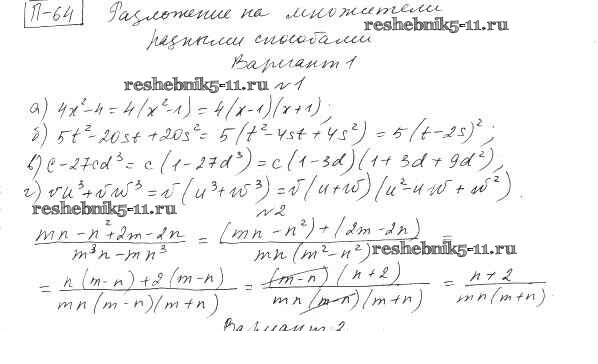 П-64 Разложение на множители
reshebnik5-11.ru
разными способами
Вариант 1
reshebnik5-11.ru №1
а) 4x²-4 = 4(x²-1) = 4(x-1)(x+1);
б) 5t²-20st+20s² = 5(t²-4st+4s²) = 5(t-2s)²;
в) c-27cd³ = c(1-27d³) = c(1-3d)(1+3d+9d²);
г) vu³+vw³ = v(u³+w³) = v(u+w)(u²-uw+w²).
reshebnik5-11.ru №2
(mn-n²+2m-2n)/(m³n-mn³) = ((mn-n²)+(2m-2n))/(mn(m²-n²)) =
reshebnik5-11.ru
= (n(m-n)+2(m-n))/(mn(m-n)(m+n)) = ((m-n)(n+2))/(mn(m-n)(m+n)) = (n+2)/(mn(m+n)).
Вариант 2